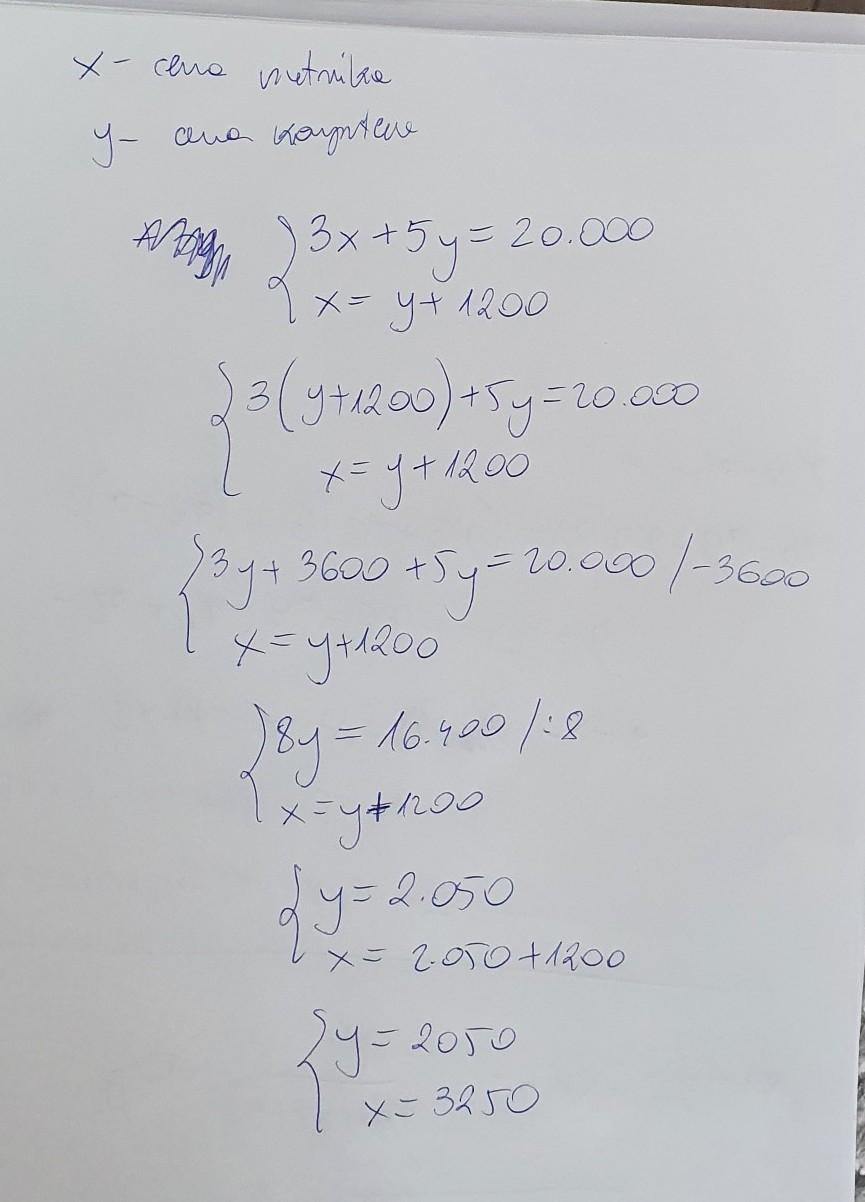 x - cena rzutnika
y - cena komputera
{ 3x + 5y = 20.000
x = y + 1200
{ 3(y+1200) + 5y = 20.000
x = y + 1200
{ 3y + 3600 + 5y = 20.000 /-3600
x = y + 1200
{ 8y = 16.400 /:8
x = y + 1200
{ y = 2.050
x = 2.050 + 1200
{ y = 2050
x = 3250